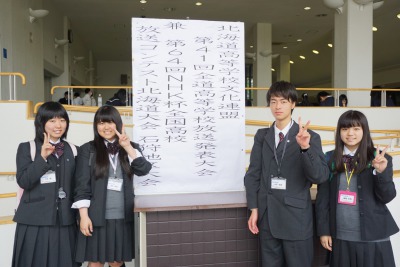 北海道高等学校文化連盟
第41回全道高等学校放送発表大会
兼　第64回NHK杯全国高校
放送コンテスト北海道大会　石狩地区大会